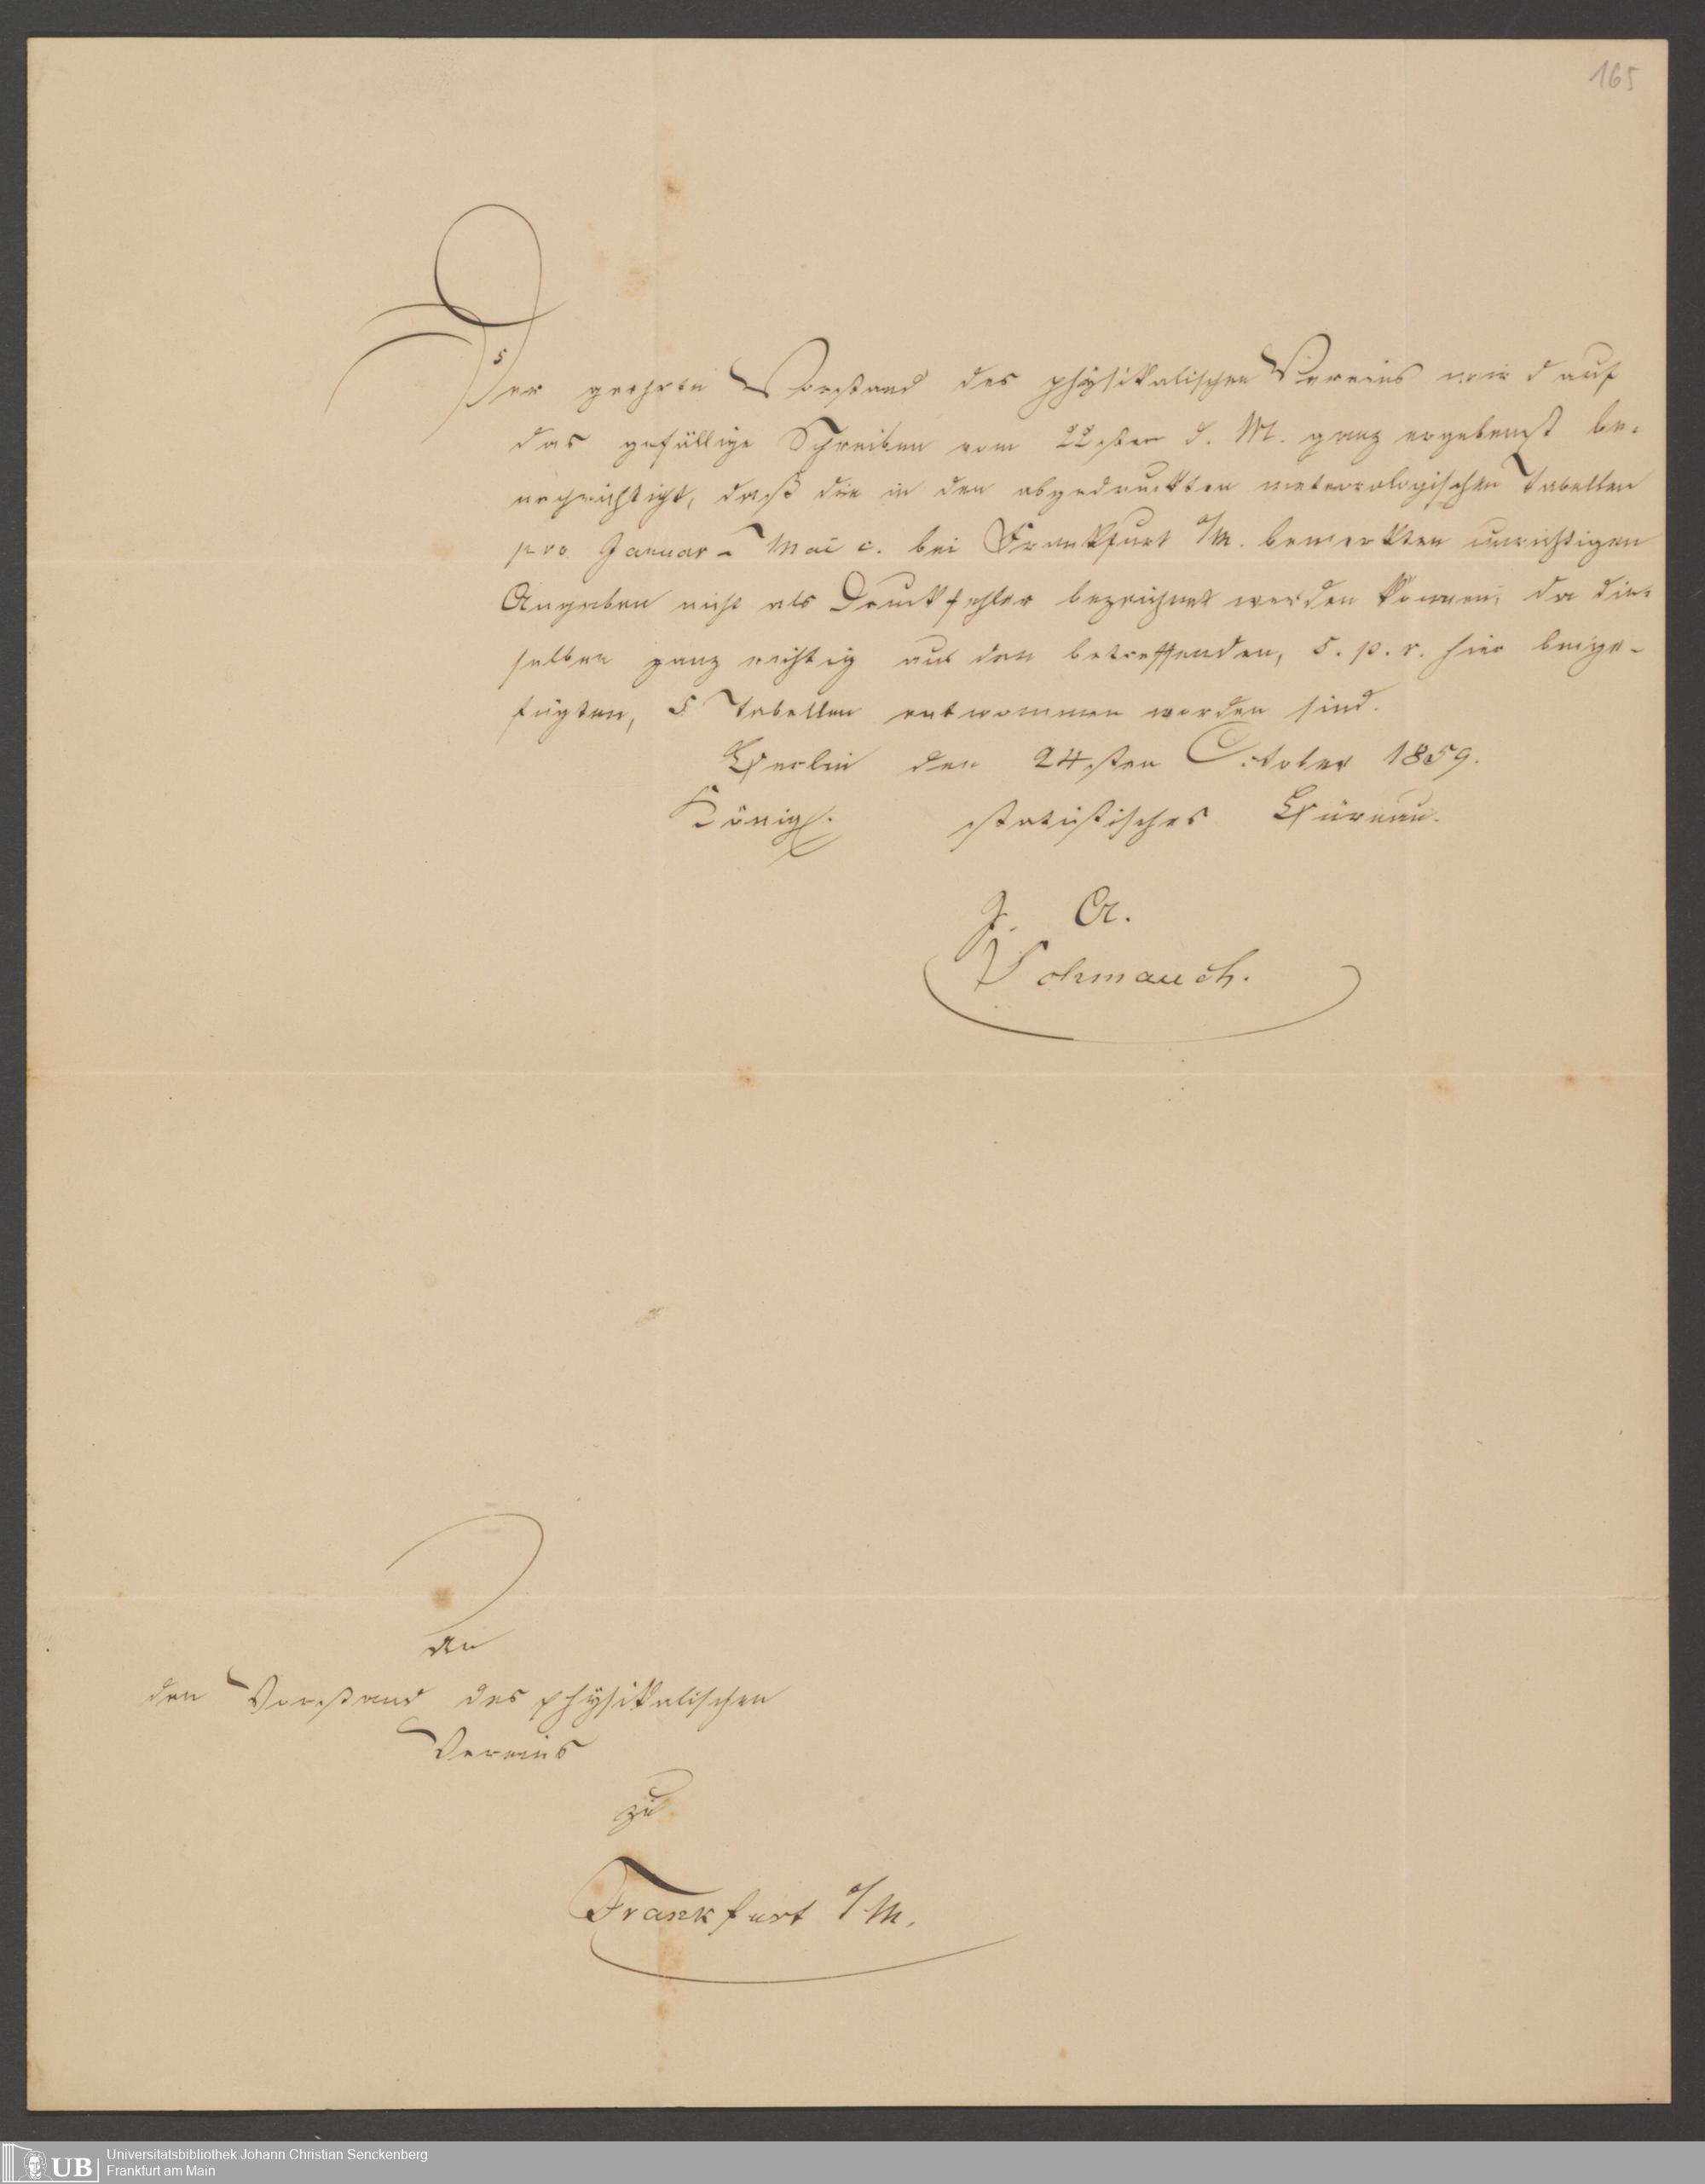 165
Der geehrte Vorstand des physikalischen Vereins wird auf
das gefällige Schreiben vom 22sten d. M. ganz ergebenst be-
nachrichtigt, daß die in den abgedruckten meteorologischen Tabellen
pro Januar - Mai c. bei Frankfurt a/M. bemerkten unrichtigen
Angaben nicht als Druckfehler bezeichnet werden können, da die-
selben ganz richtig aus den betreffenden, s. p. r. hier beige-
fügten, 5 Tabellen entnommen worden sind.
Berlin den 24sten October 1859.
Königl. statistisches Büreau.
J. A.
Schmauch.
An
den Vorstand des physikalischen
Vereins
zu
Frankfurt a/M.
UB Universitätsbibliothek Johann Christian Senckenberg
Frankfurt am Main